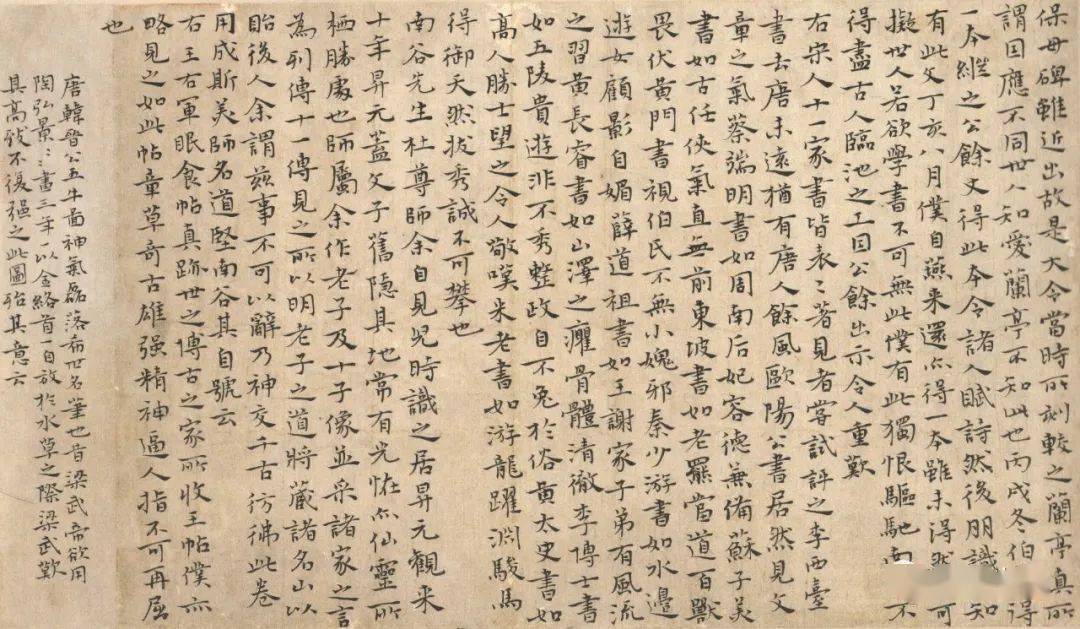 保母碑雖近出故是大令當時所刻較之蘭亭真所
謂因應不同世人知愛蘭亭不知此也丙戌冬伯得
一本継之公餘丈得此本令諸人賦詩然後朋識知
有此文丁亥八月僕自燕来還亦得一本雖未得可
擬世人若欲學書不可無此僕有此獨恨驅馳南不
得盡古人臨池之工因公餘出示令人重歎
右宋人十一家書皆表〻著見者嘗試評之李西臺
書去唐未遠猶有唐人餘風歐陽公書居然見文
章之氣蔡端明書如周南后妃容德兼備蘇子美
書如古任俠氣直無前東坡書如老羆當道百獸
畏伏黄門書視伯氏不無小媿邪秦少游書如水邊
遊女顧影自媚薛道祖書如王謝家子弟有風流
之習黄長睿書如山澤之癯骨體清徹李博士書
如五陵貴遊非不秀整政自不免於俗黄太史書如
高人勝士望之令人敬嘆米老書如游龍躍淵駿馬
得御天然拔秀誠不可攀也
南谷先生杜尊師余自見兒時識之居昇元觀来
十年昇元蓋文子舊隱其地常有光恠亦仙靈所
栖勝處也師屬余作老子及十子像並采諸家之言
為列傳十一傳見之所以明老子之道將蔵諸名山以
貽後人余謂兹事不可以辭乃神交千古彷彿此卷
用成斯美師名道堅南谷其自號云
右王右軍眠食帖真跡世之傳古之家所收王帖僕亦
略見之如此帖章草奇古雄强精神逼人指不可再屈
也
唐韓晉公五牛圖神氣磊落希世名筆也昔梁武帝欲用
陶弘景〻畫二牛一以金絡首一自放於水草之際梁武歎
其高致不復强之此圖殆其意云